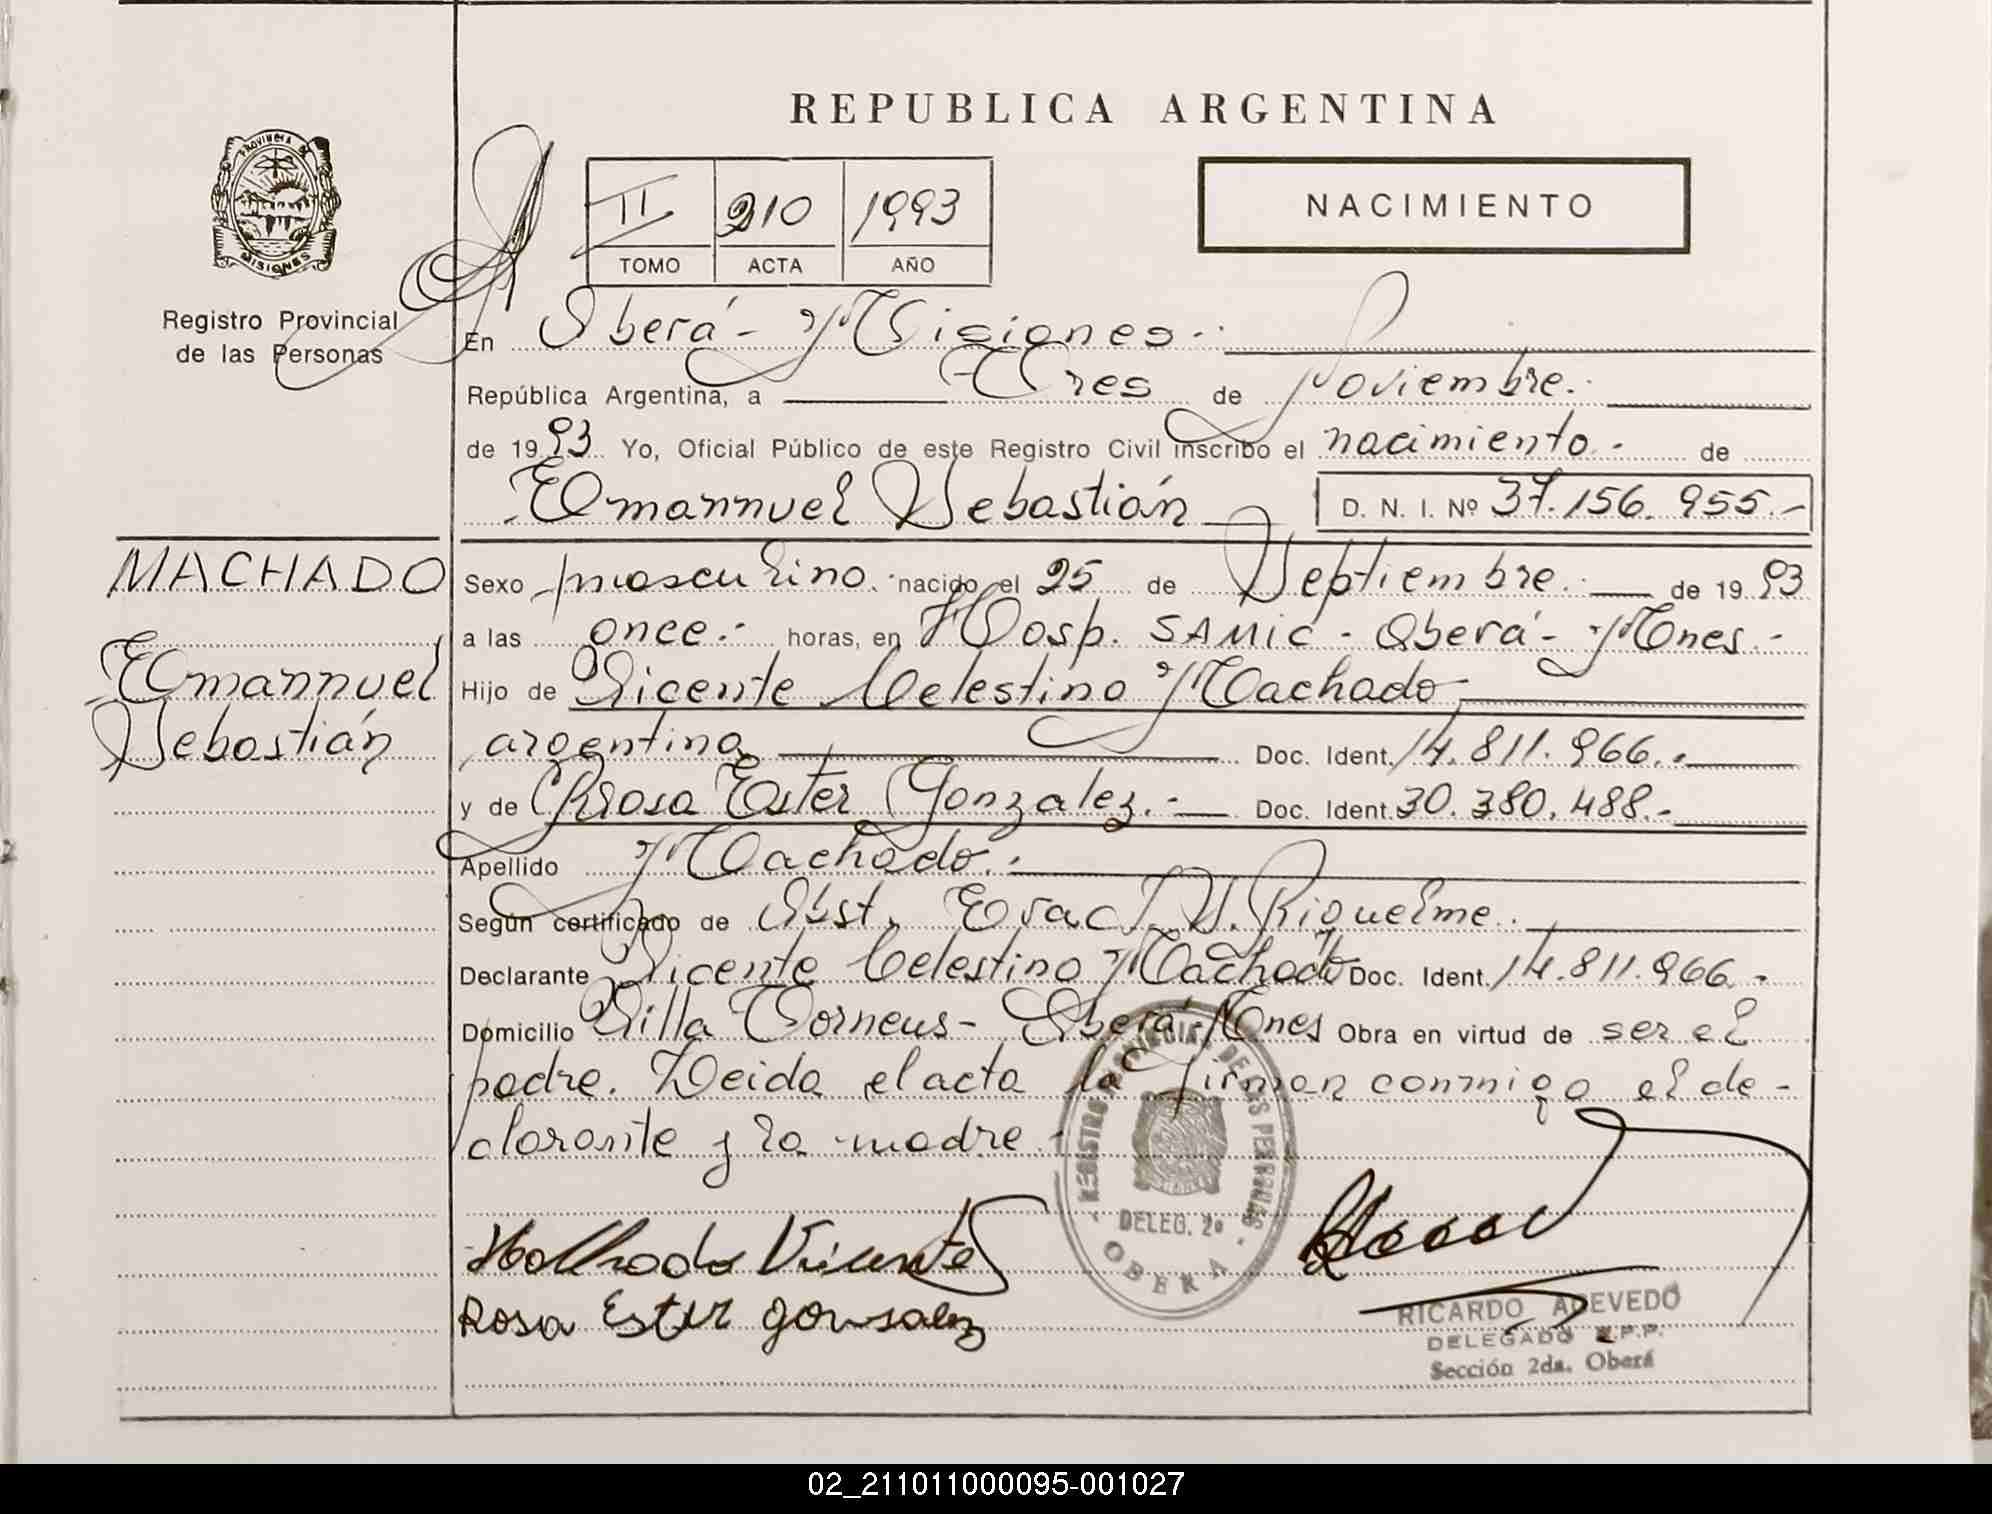 REPUBLICA ARGENTINA
PROVINCIA DE
MISIONES
Registro Provincial
de las Personas
II 210 1993
TOMO ACTA AÑO
NACIMIENTO
En Oberá - Misiones.-
República Argentina, a Tres de Noviembre.-
de 1993 Yo, Oficial Público de este Registro Civil inscribo el nacimiento.- de
Emannuel Sebastián D. N. I. Nº 37.156.955.-
MACHADO
Emannuel
Sebastián
Sexo masculino. nacido el 25 de Septiembre.- de 1993
a las once.- horas, en Hosp. SAMIC - Oberá - Mnes.-
Hijo de Vicente Celestino Machado
argentino Doc. Ident. 14.811.966.-
y de Rosa Ester Gonzalez.- Doc. Ident. 30.380.488.-
Apellido Machado.-
Según certificado de Obst. S. Riquelme.
Declarante Vicente Celestino Machado Doc. Ident. 14.811.966.-
Domicilio Villa Torneus - Oberá - Mnes Obra en virtud de ser el
padre. Leida el acta la firman conmigo el de-
clarante y la madre.-
REGISTRO PROVINCIAL DE LAS PERSONAS
DELEG. 2ª
OBERA
Machado Vicente
Rosa Ester gonsalez
RICARDO ACEVEDO
DELEGADO R.P.P.
Sección 2da. Oberá
02_211011000095-001027